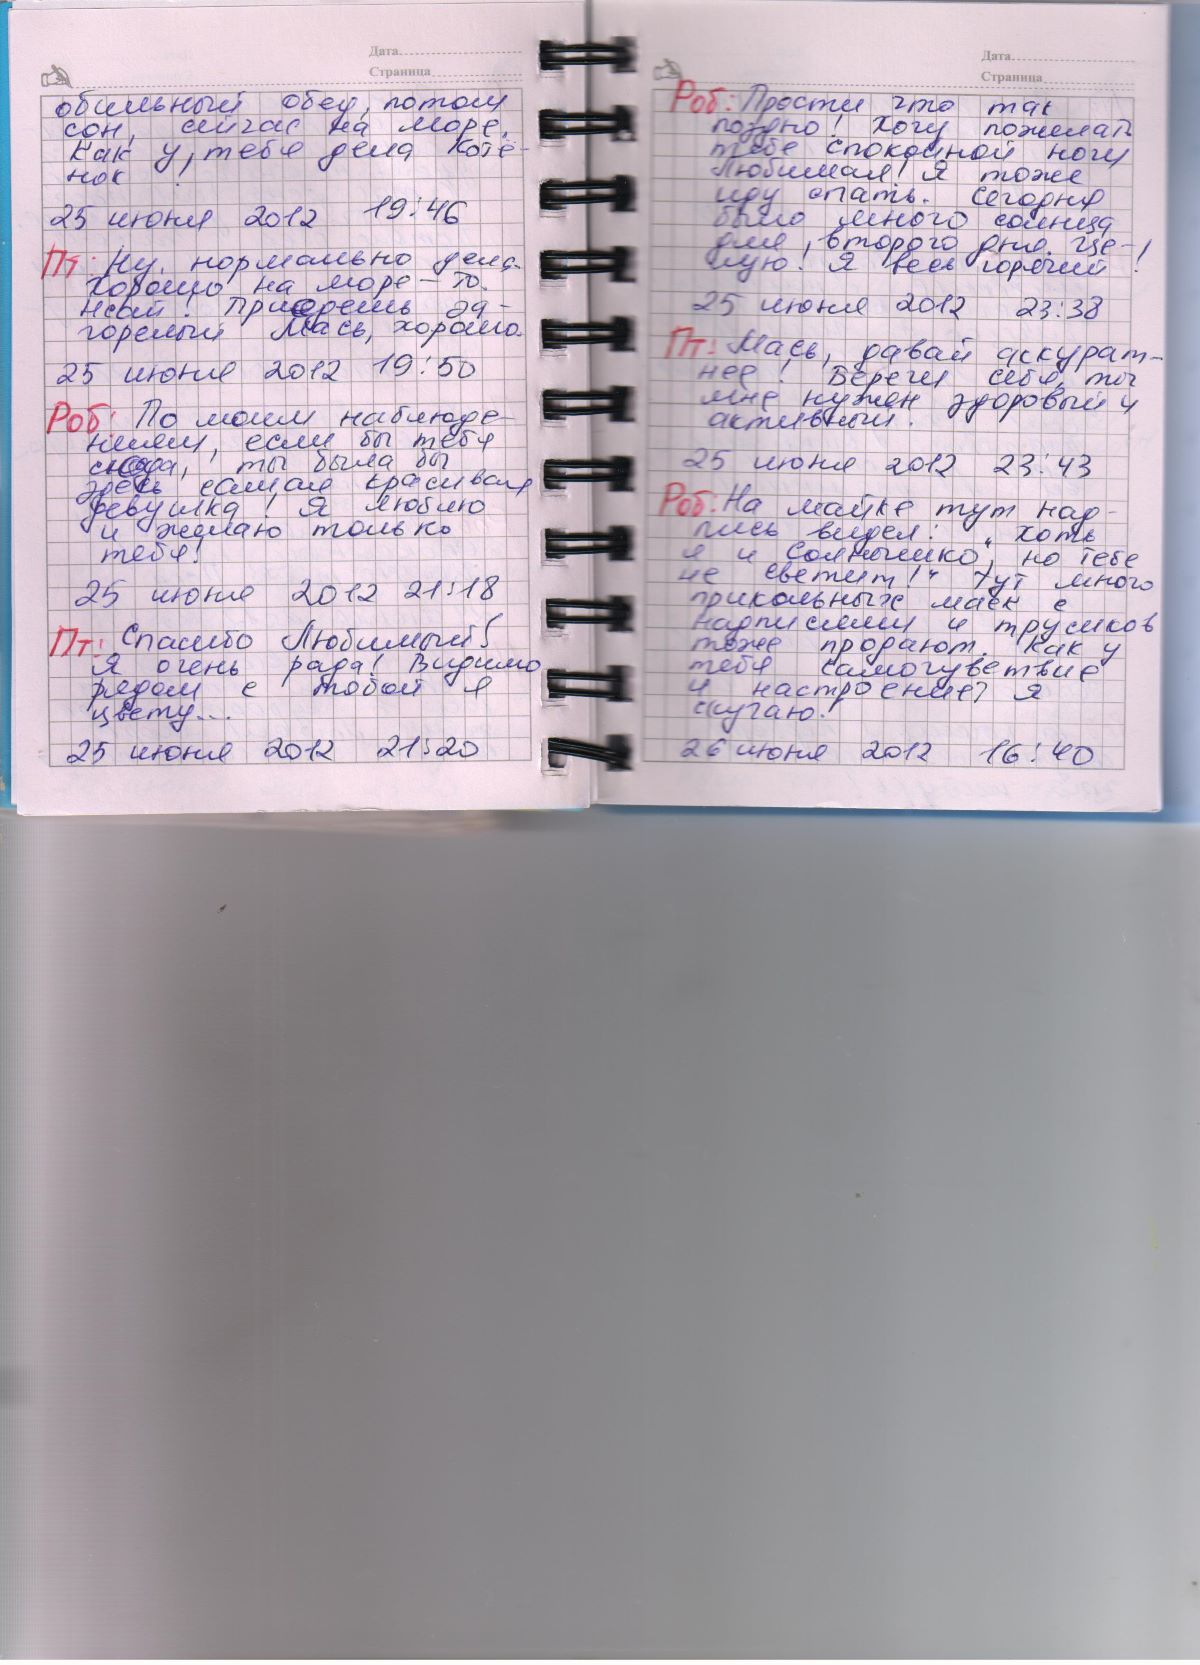 Дата
Страница
обильный обед, потом
сон, сейчас на море.
Как у тебя дела Котё-
нок
25 июня 2012 19:46
Пт: Ну нормально дела.
Хорошо на море - то.
Приедешь за-
горелый Мась, хорошо.
25 июня 2012 19:50
Роб: По моим наблюде-
ниям, если бы тебя
сюда, ты была бы
здесь самая красивая
девушка! Я люблю
и желаю только
тебя!
25 июня 2012 21:18
Пт: Спасибо Любимый!
Я очень рада! Видимо
рядом с тобой я
цвету...
25 июня 2012 21:20
Дата
Страница
Роб: Прости что так
поздно! Хочу пожелать
тебе спокойной ночи
Любимая! Я тоже
иду спать. Сегодня
было много солнца
для второго дня. Це-
лую! Я весь горячий!
25 июня 2012 23:38
Пт: Мась, давай аккурат-
нее! Береги себя, ты
мне нужен здоровый и
активный.
25 июня 2012 23:43
Роб: На майке тут над-
пись видел: „Хоть
я и Солнышко, но тебе
не светит!" Тут много
прикольных маек с
надписями и трусиков
тоже продают. Как у
тебя самочувствие
и настроение? Я
скучаю!
26 июня 2012 16:40